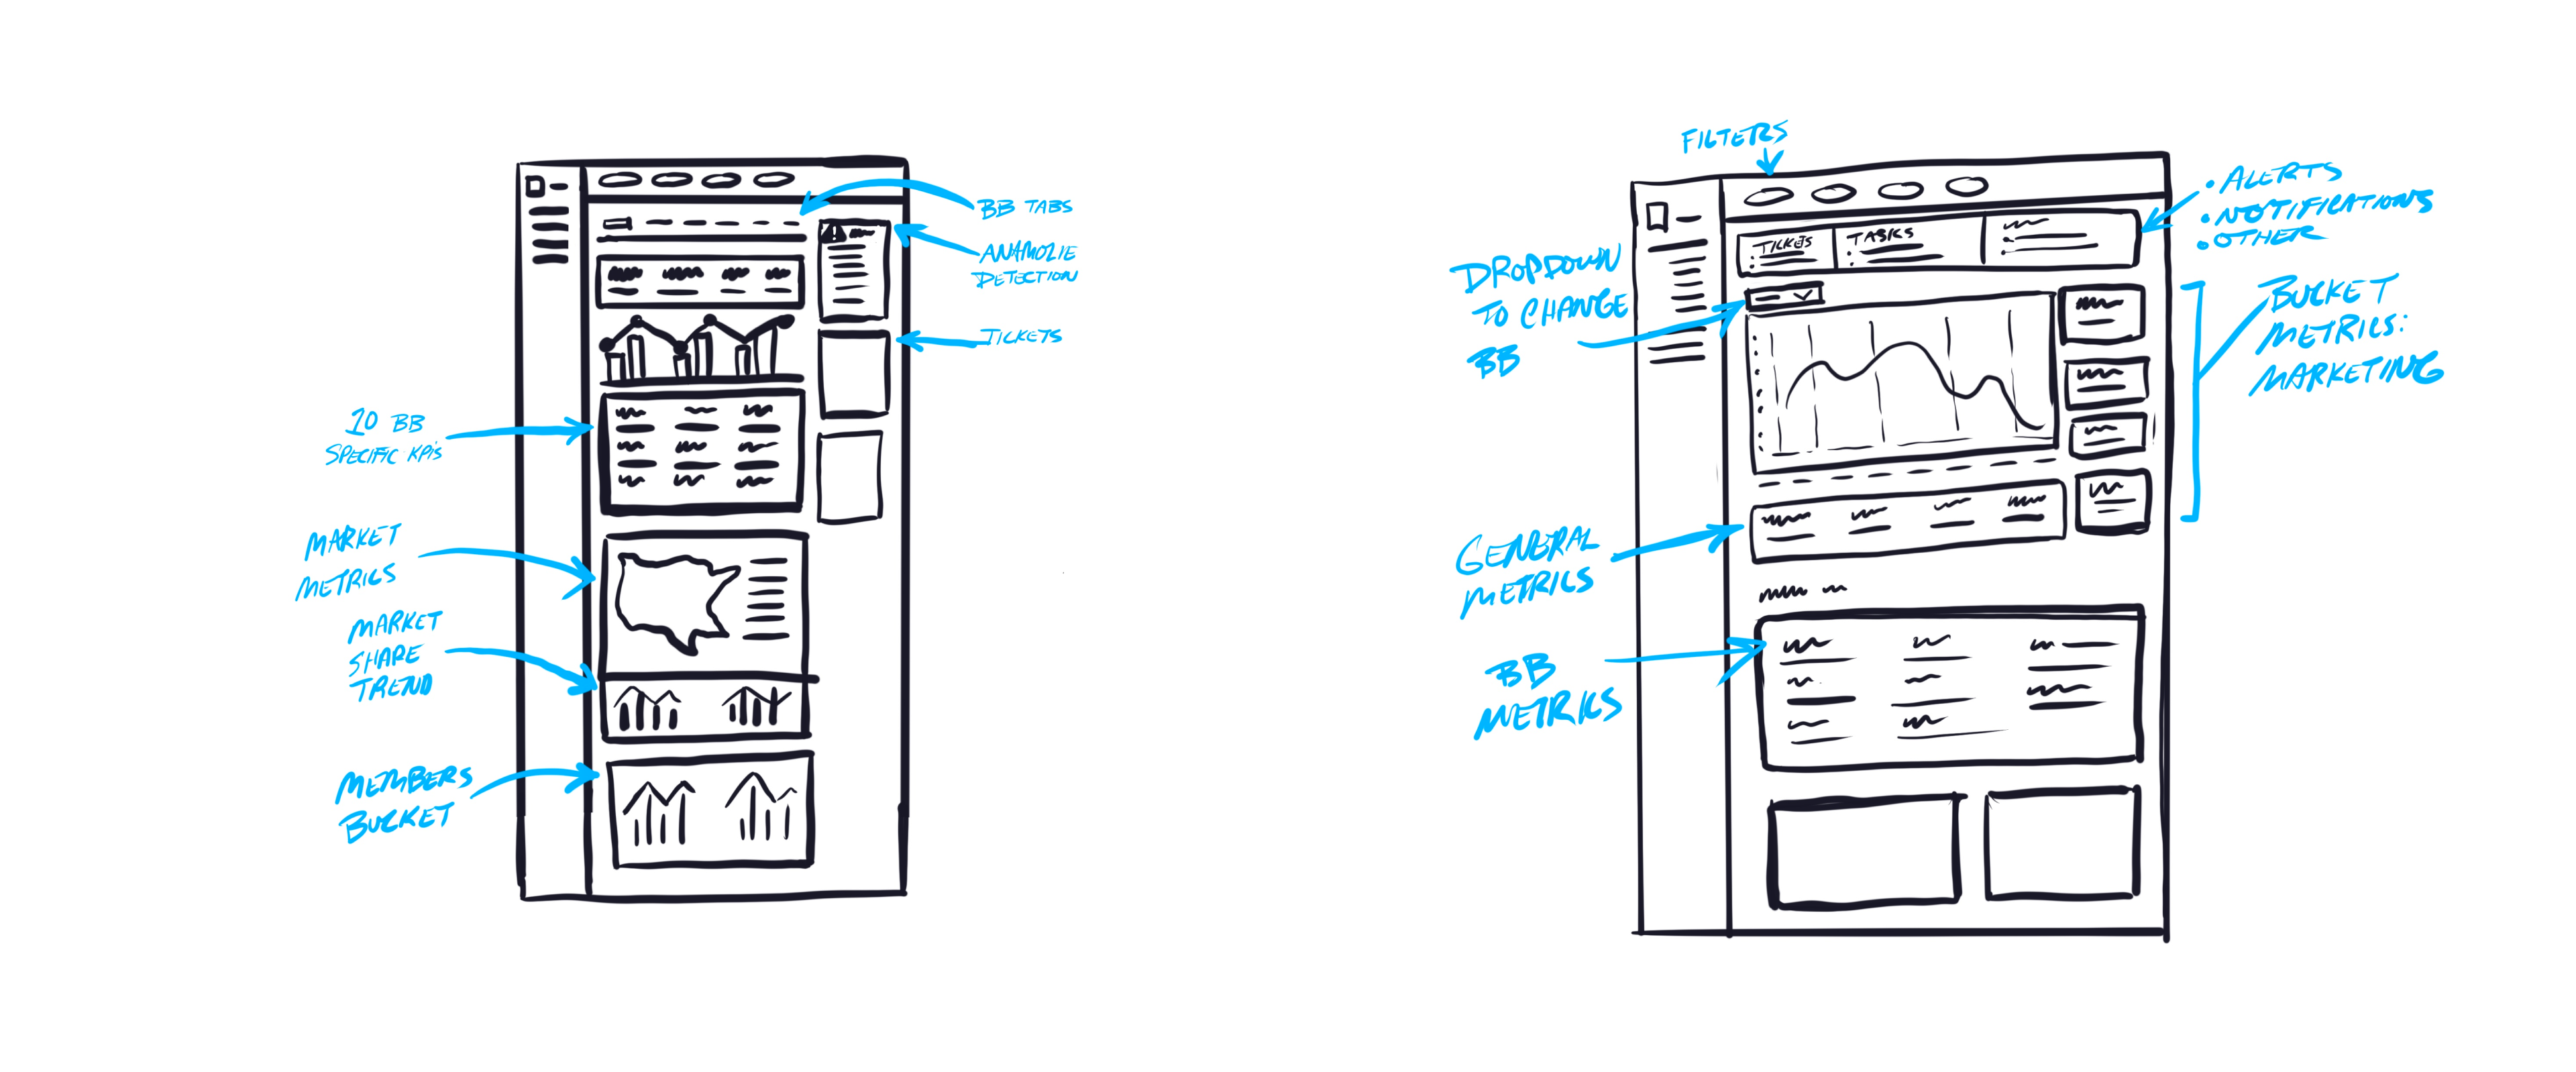 BB TABS
ANAMOLIE
DETECTION
TICKETS
10 BB
SPECIFIC KPIS
MARKET
METRICS
MARKET
SHARE
TREND
MEMBERS
BUCKET
FILTERS
• ALERTS
• NOTIFICATIONS
• OTHER
TICKETS
TASKS
DROPDOWN
TO CHANGE
BB
BUCKET
METRICS:
MARKETING
GENERAL
METRICS
BB
METRICS